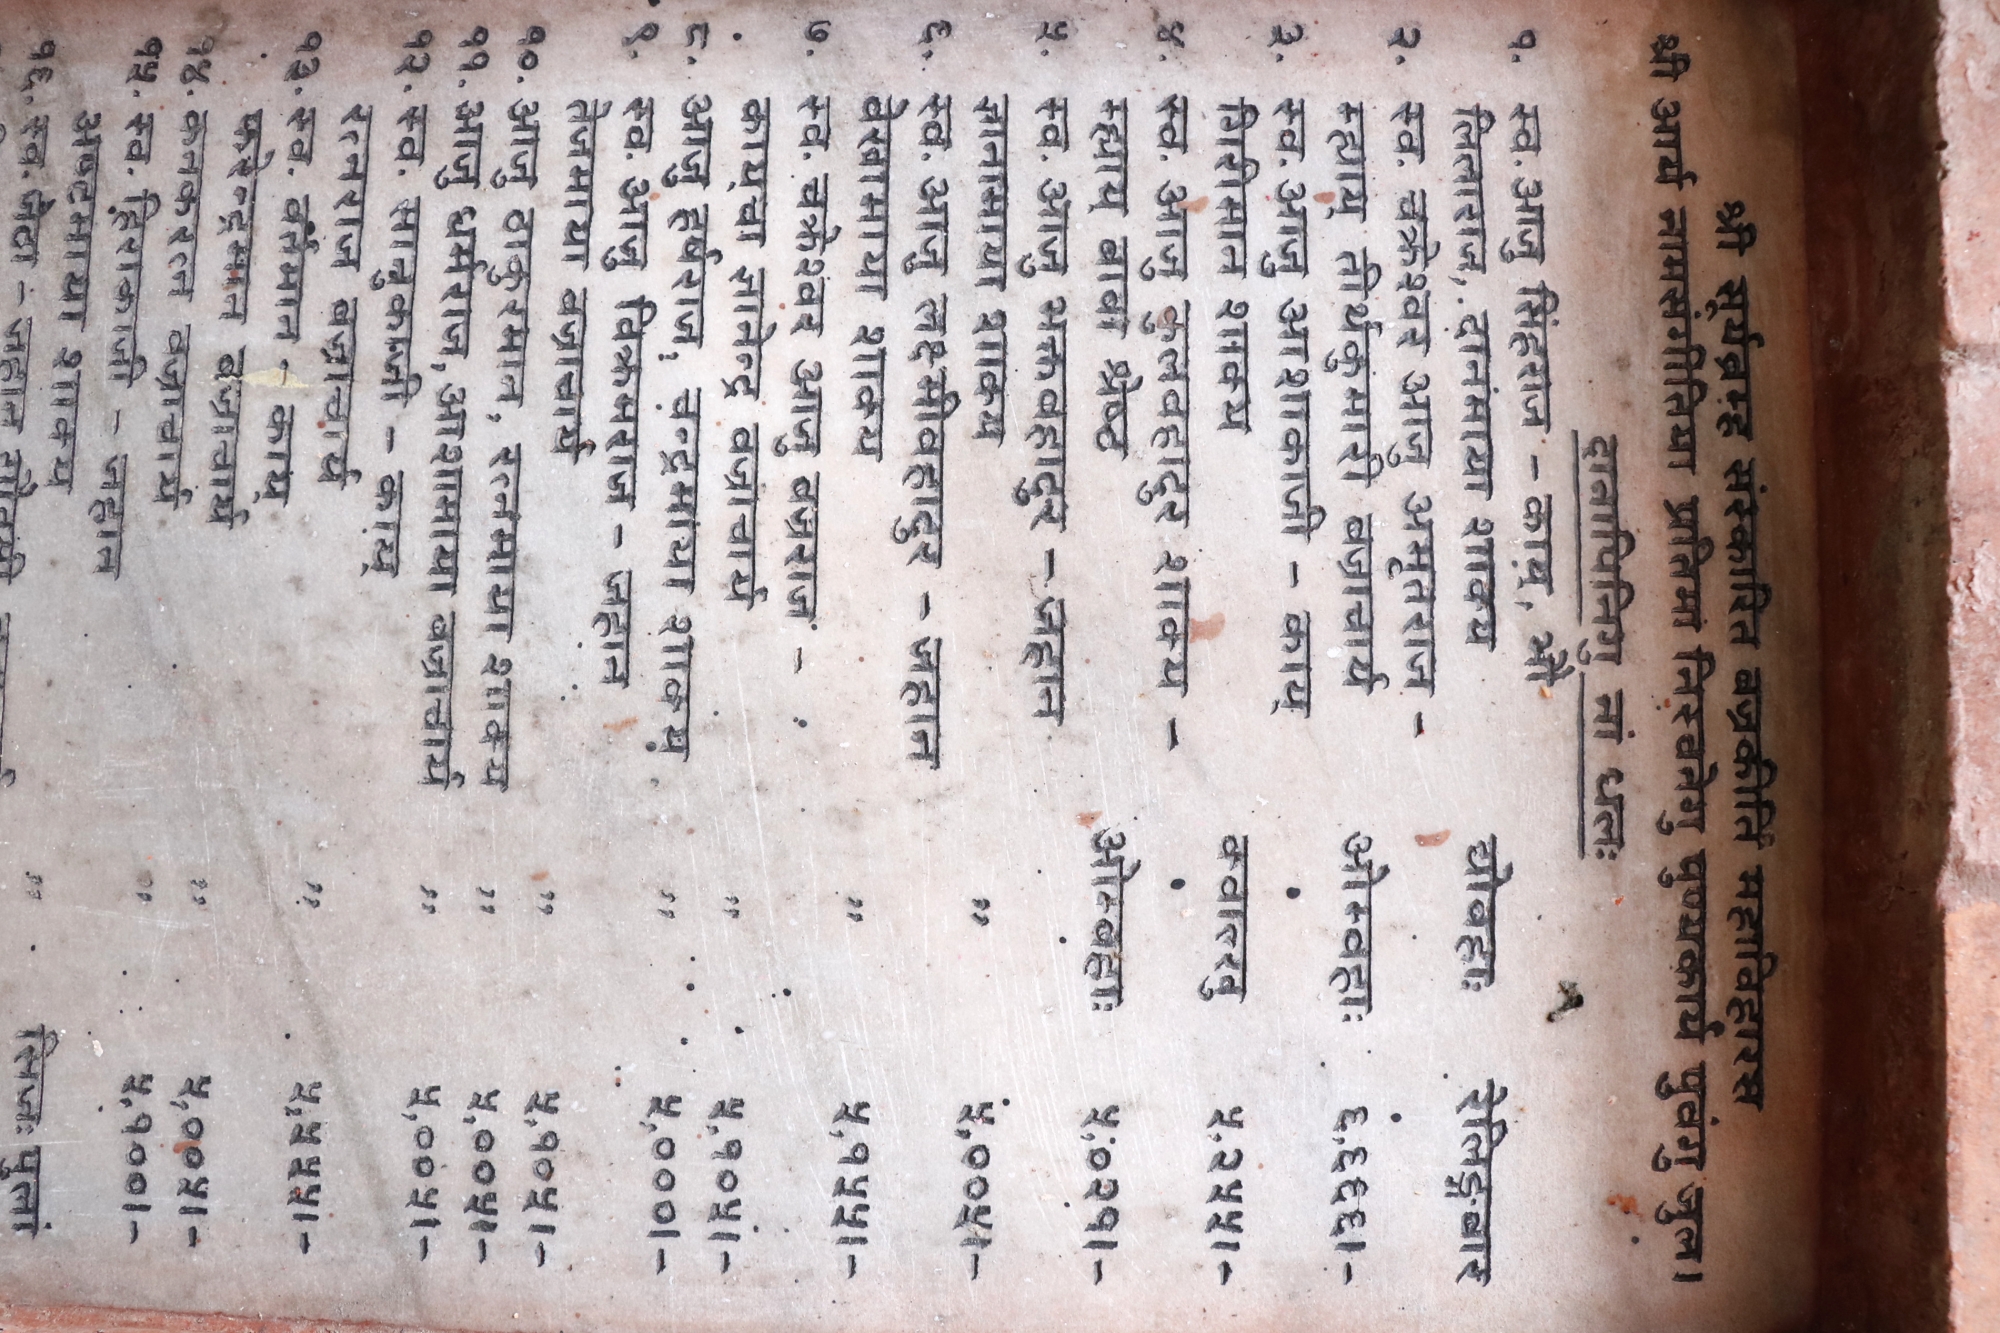 श्री सूर्यब्रम्ह संस्कारित वज्रकीर्ति महाविहारस
श्री आर्य नामसंगीतिया प्रतिमां निस्चंनेगु पुण्यकार्य पुवंगु जुल।
दातापिनिगु नां धलः
१. स्व. आजु सिंहराज - काय्, भौ
ललितराज, दानंमाया शाक्य योबहाः रेलिङ्गबार
२. स्व. चक्रेश्वर आजु अमृतराज -
म्ह्याय् तीर्थकुमारी बज्राचार्य ओम्बहाः ६,६६६।-
३. स्व. आजु आशाकाजी - काय्
गिरिमान शाक्य क्वालखु ५,२५५।-
४. स्व. आजु कुलबहादुर शाक्य -
म्ह्याय् बाबा श्रेष्ठ ओम्बहाः ५,०२१।-
५. स्व. आजु भक्तबहादुर - जहान
ज्ञानमाया शाक्य ,, ५,००५।-
६. स्व. आजु लक्ष्मीबहादुर - जहान
बेखामाया शाक्य ,, ५,१५५।-
७. स्व. चक्रेश्वर आजु बज्रराज -
काय्चा ज्ञानेन्द्र बज्राचार्य ,, ५,१०५।-
८. आजु हर्षराज, चन्द्रमाया शाक्य ,, ५,०००।-
९. स्व. आजु विक्रमराज - जहान
तेजमाया बज्राचार्य
१०. आजु ठाकुरमान, रत्नमाया शाक्य ,, ५,१०५।-
११. आजु धर्मराज, आशामाया बज्राचार्य ,, ५,००५।-
१२. स्व. सानुकाजी - काय्
रत्नराज बज्राचार्य ,, ५,००५।-
१३. स्व. वर्तमान - काय्
फत्तेन्द्रमान बज्राचार्य ,, ५,५५५।-
१४. कनकरत्न बज्राचार्य ,, ५,००५।-
१५. स्व. हिराकाजी - जहान
अष्टमाया शाक्य ,, ५,१००।-
१६. स्व. जेठा - जहान ,, सिजः पुलां